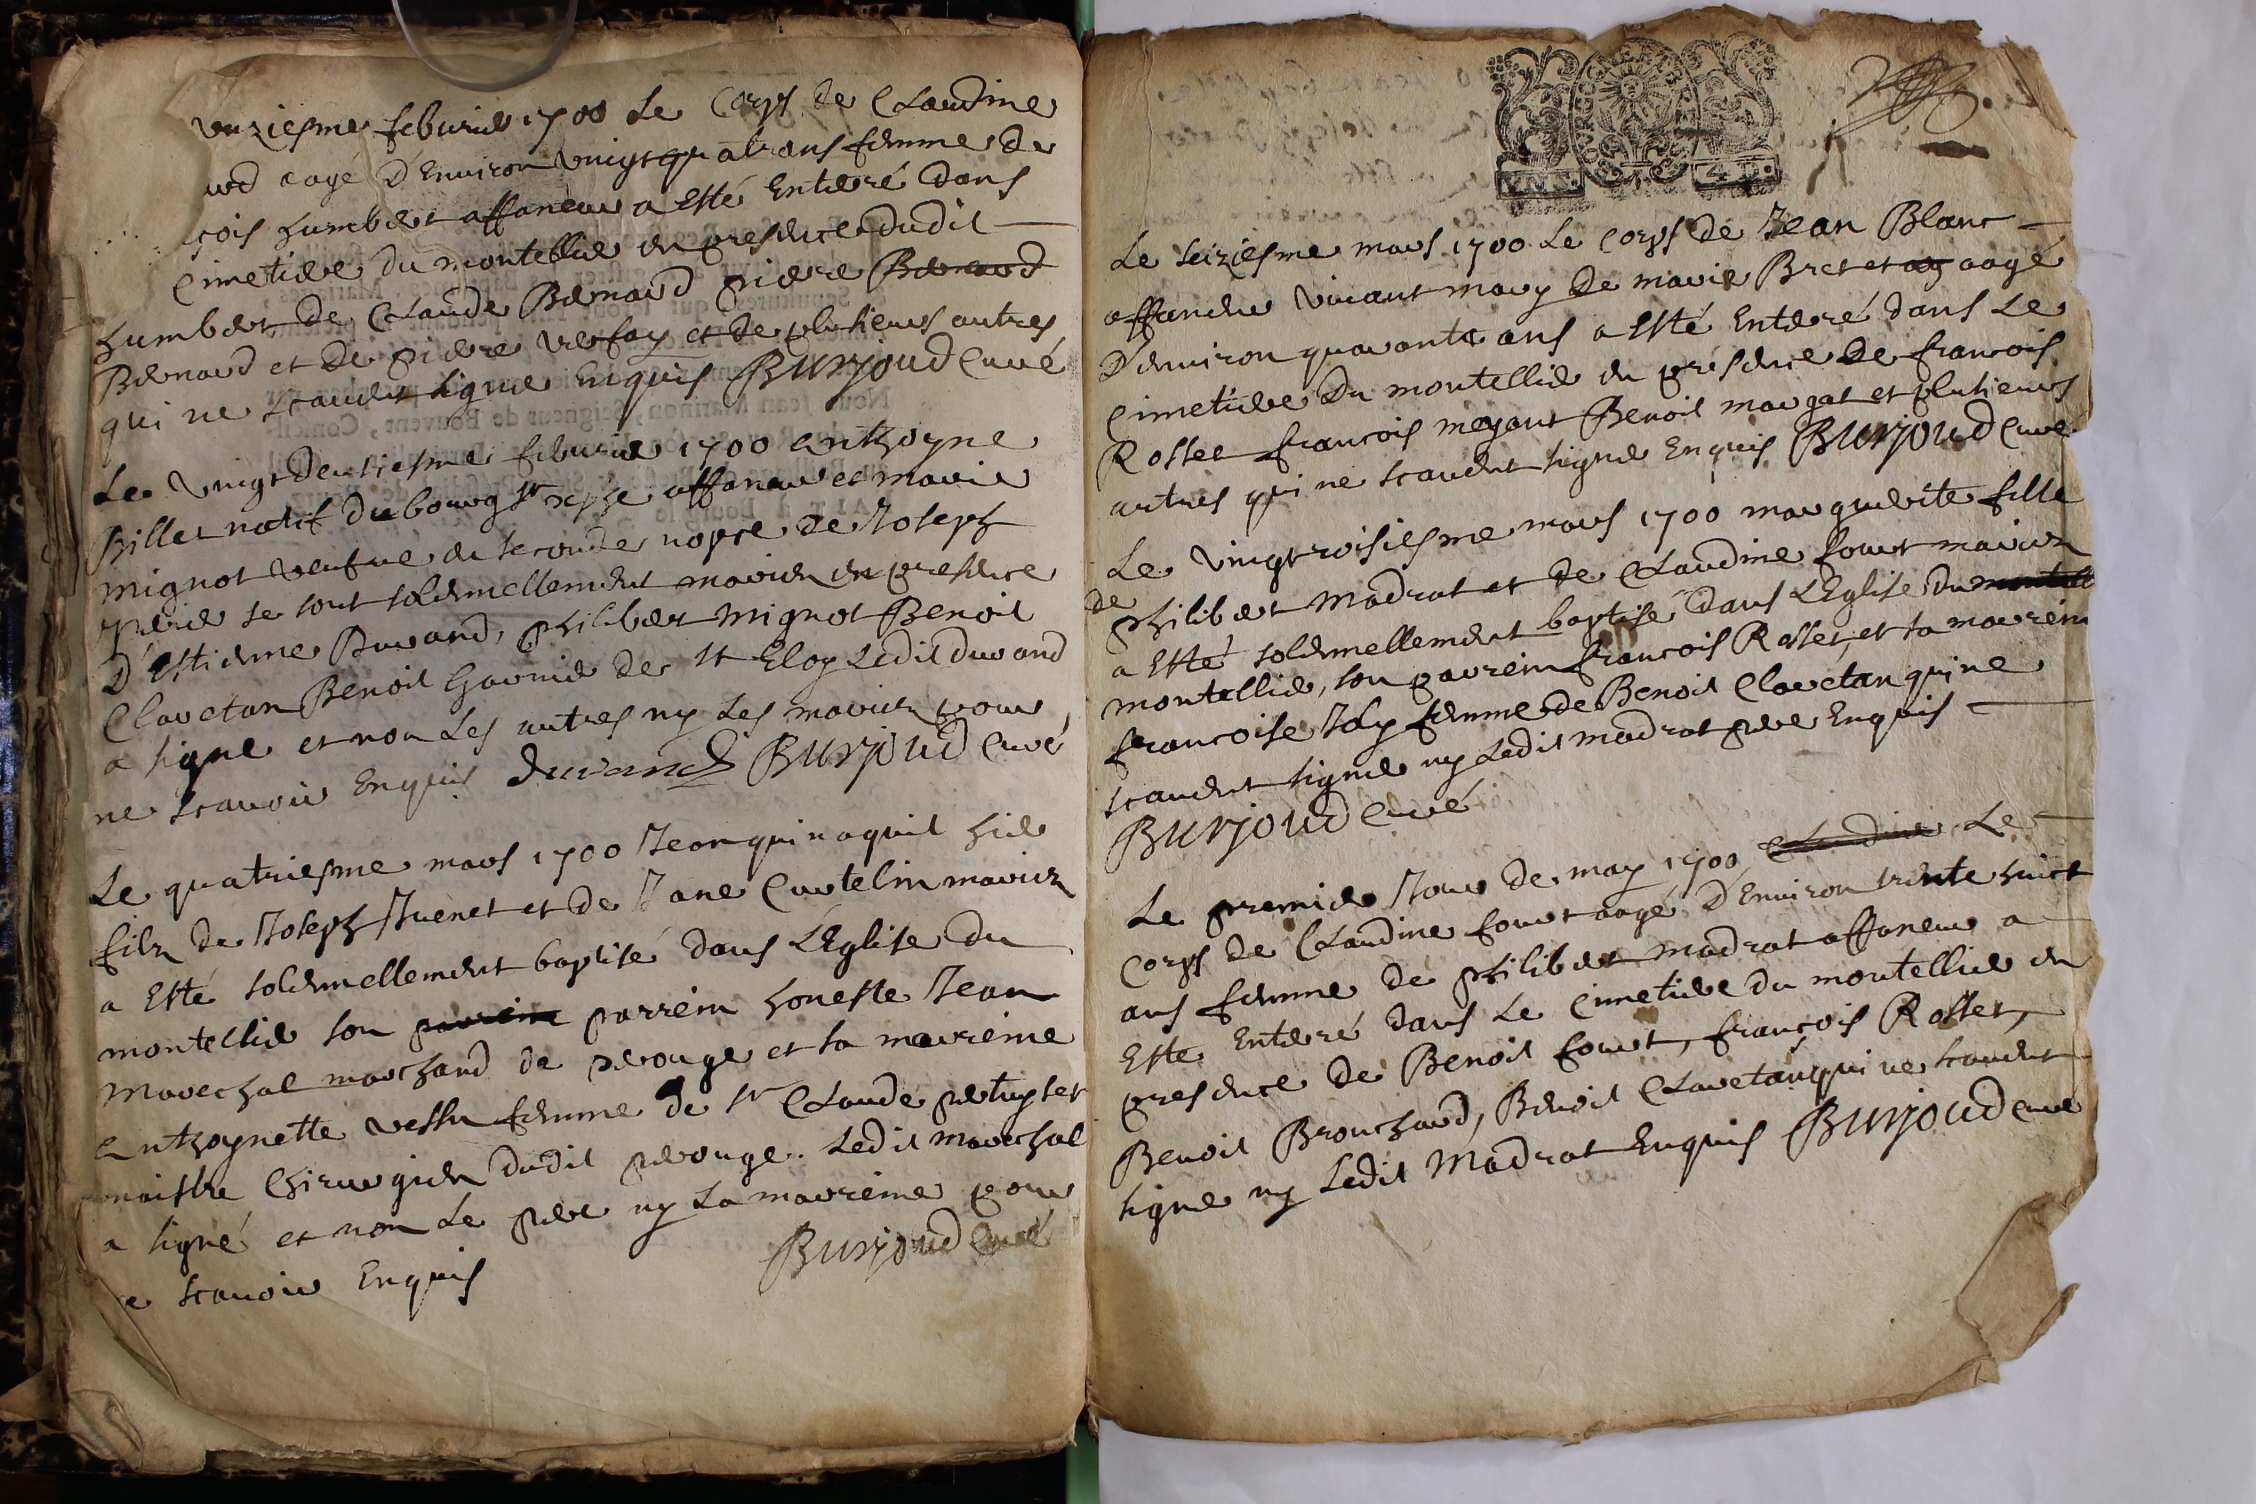 unziesme feburier 1700 Le Corps de Claudine
ard aagé d'Environ vingt quatr ans femme de
çois humbert affaneur a Esté Enterré dans
Cimetiere du montellier en presence dudit
humbert de Claude Bernard pierre Bernard
Bernard et de pierre et de plusieurs autres
qui ne scavent signer Enquis Burjoud Curé
Le vingt deusiesme feburier 1700 Anthoyne
Billet natif du bourg St affaneur et marie
mignot veufve en seconde nopce de Joseph
se sont solemnellement mariez en presence
D'Estienne Durand, philibert mignot Benoit
Clavetan Benoit Garnier de St Eloy Ledit durand
a signe et non Les autres ny Les mariez pour
ne scavoir Enquis durand Burjoud Curé
Le quatriesme mars 1700 Jean qui naquit hier
filz de Joseph Juenet et de Jane Curtelin mariez
a Esté solemnellement baptisé dans L'Eglise du
montellier son parrein parrein honeste Jean
marechal marchand de perouge et sa marreine
Anthoynette femme de Sr Claude
maistre Chirurgien dudit perouge. Ledit marechal
a signé et non Le pere ny La marreine pour
e scavoir Enquis Burjoud Curé
Le seiziesme mars 1700 Le Corps de Jean Blanc
affaneur vivant mary de marie Bret et ag aagé
D'environ quarante ans a Esté Enterré dans Le
Cimetiere Du montellier en présence de francois
Rosset francois mejant Benoit margat et plusieurs
autres qui ne scavent signer Enquis Burjoud Curé
Le vingtroisiesme mars 1700 marguerite fille
de
philibert madrat et de Claudine fourt mariez
a Esté solemnellement baptisé dans L'Eglise du montell
montellier, son parrein francois Rosset, et sa marreine
francoise Joly femme de Benoit Clavetan qui ne
scavent signer ny Ledit madrat pere Enquis
Burjoud Curé
Le premier Jour de may 1700 Claudine Le
Corps de Claudine fourt aagé D'Environ trente huict
ans femme de philibert madrat affaneur a
Este Enterré dans Le Cimetiere du montellier en
presence de Benoit fourt, françois Rosset,
Benoit Brouchard, Benoit Clavetan qui ne scavent
signer ny Ledit Madrat Enquis Burjoud Curé